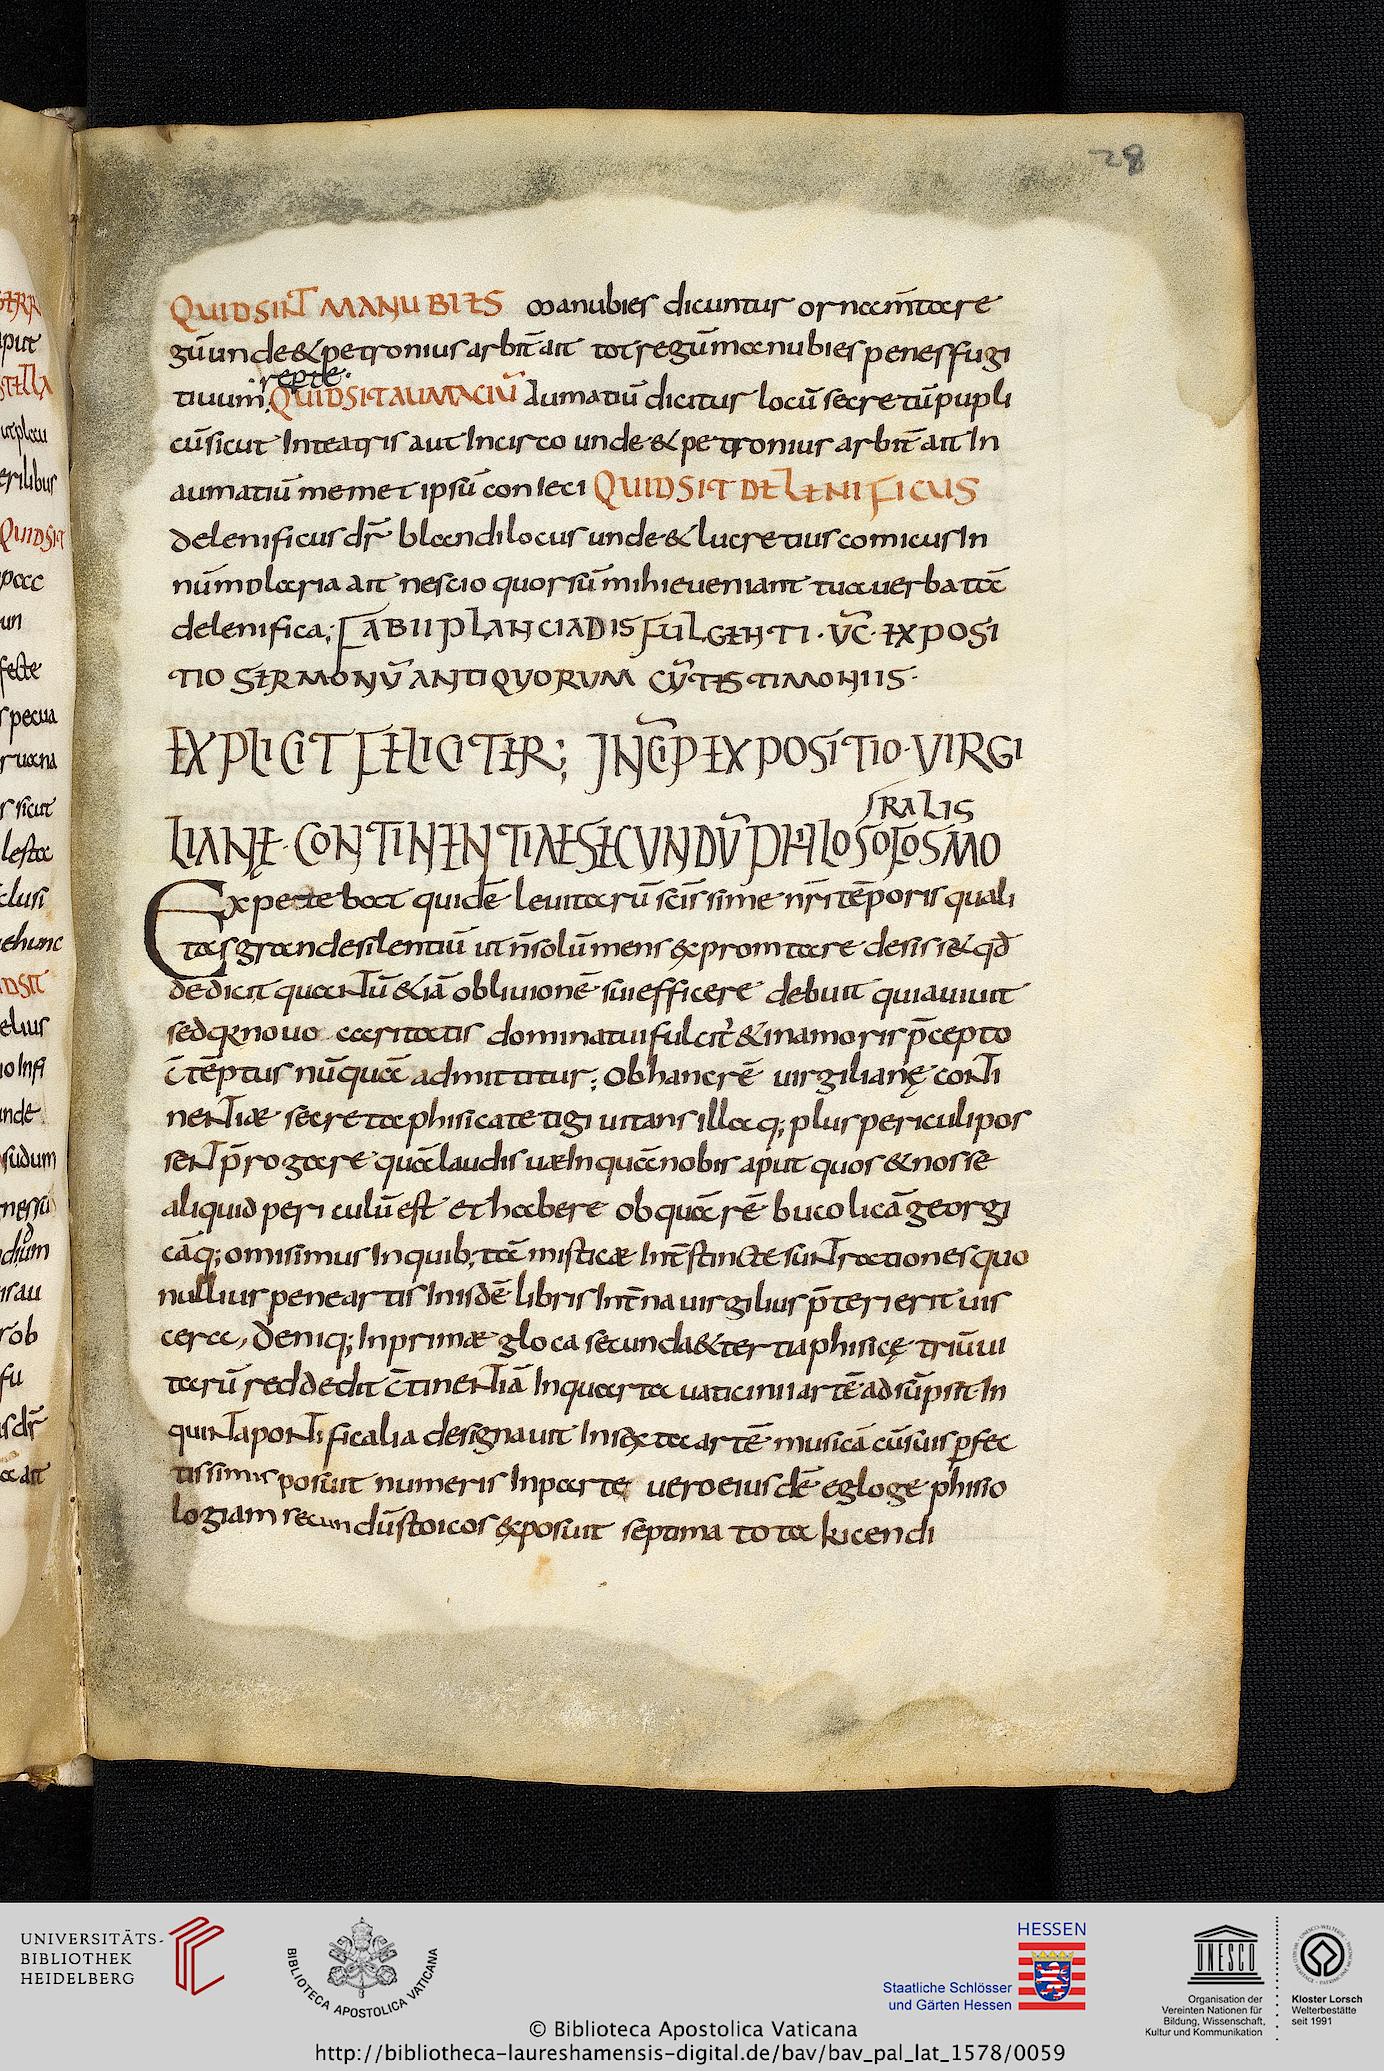 28
QUID SINT MANUBIES manubies dicuntur ornam̄ta re
gū unde & petronius arbit̄ ait tot regū manubies penes fugi
tiuum repte. QUID SIT AUMACIŪ Aumatiū dicitur locū secretū pupli
cū sicut In teatris aut In circo unde & petronius arbit̄ ait In
aumatiū memet ipsū conieci QUID SIT DELENIFICUS
delenificus dr̄ blandilocus unde & lucretius comicus In
nūmolaria ait nescio quorsū mihi eveniant tua verba tā
delenifica; FABII PLANCIADIS FULGENTI · V̄C · EXPOSI
TIO SERMONV̄ ANTIQVORVM CV̄ TESTIMONIIS ·
EXPLICIT FELICITER; INCIP̄ EXPOSITIO · VIRGI
RALIS
LIANĘ · CONTINENTIAE SECVNDV̄ PHILOSOFOS MO
Expectebat quidē levitarū scissime nr̄i tēporis quali
tas grande silentiū ut n̄ solū mens expromtare desisset qd̄
dedicit quantū & iā oblivionē sui efficere debuit quia vivit
sed qr̄ novo caritatis dominatui fulcit̄ & in amoris p̄cepto
c̄tēptus nūquā admittitur; Ob hanc rē virgilianę conti
nentiæ secreta phisica tetigi vitans illa q; plus periculi pos
sent p̄rogare quā laudis væ Inquā nobis aput quos & nosse
aliquid periculū est et habere ob quā rē bucolicā georgi
cāq; omisimus In quib; tā misticæ Int̄stincte sunt rationes quo
nullius pene artis In isdē libris Int̄na virgilius p̄terierit vis
cera, Deniq; In prima egloca secunda & tertia phisicę triū vi
tarū reddedit c̄tinentiā In quarta vaticinii artē adsūpsit In
quinta pontificalia designavit In sexta artē musicā cū suis p̄fec
tissimis posuit numeris In parte vero eiusdē egloge phisio
logiam secundū stoicos exposuit septima tota kicendi
UNIVERSITÄTS-
BIBLIOTHEK
HEIDELBERG
BIBLIOTECA APOSTOLICA VATICANA
HESSEN
Staatliche Schlösser
und Gärten Hessen
UNESCO
Organisation der
Vereinten Nationen für
Bildung, Wissenschaft,
Kultur und Kommunikation
Kloster Lorsch
Welterbestätte
seit 1991
© Biblioteca Apostolica Vaticana
http://bibliotheca-laureshamensis-digital.de/bav/bav_pal_lat_1578/0059